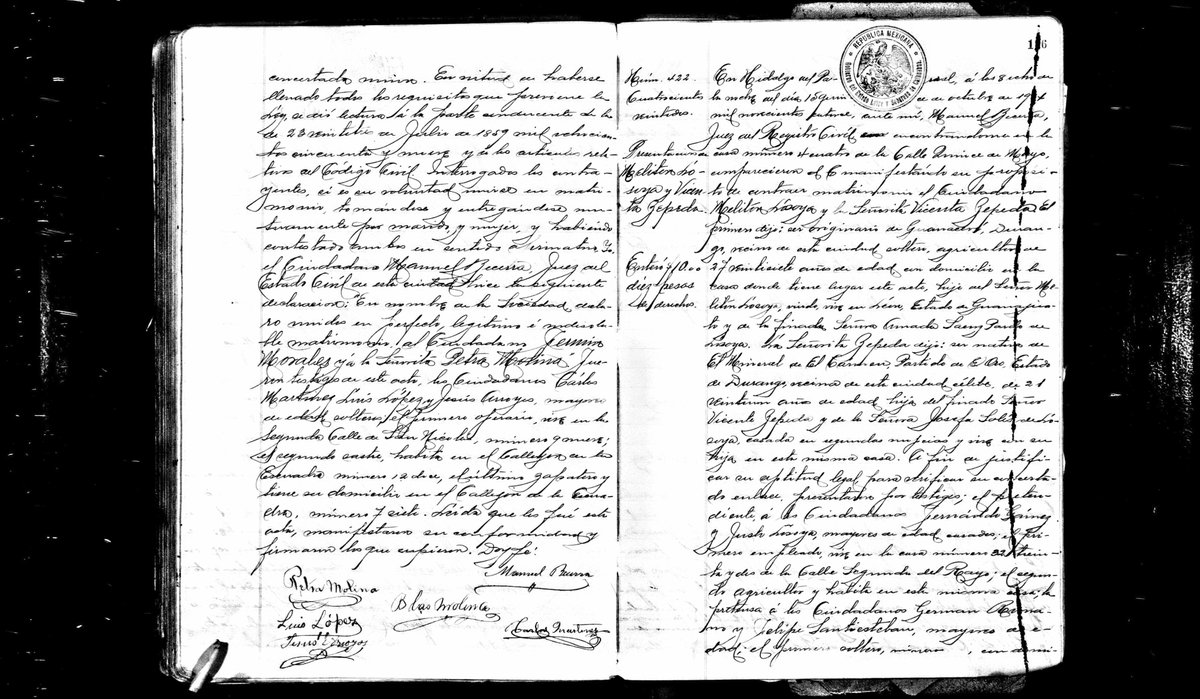 concertada unión. En virtud de haberse
llenado todos los requisitos que previene la
Ley, se dió lectura á la parte conducente de la
de 23 veintitres de Julio de 1859 mil ochocien-
tos cincuenta y nueve y á los artículos rela-
tivos del Código Civil. Interrogados los contra-
yentes, si es su voluntad unirse en matri-
monio, tomándose y entregándose mu-
tuamente por marido y mujer, y habiendo
contestado ambos en sentido afirmativo, Yo,
el Ciudadano Manuel Becerra, Juez del
Estado Civil de esta ciudad hice la siguiente
declaración: En nombre de la Sociedad decla-
ro unidos en perfecto, legítimo é indisolu-
ble matrimonio, al Ciudadano Fermin
Morales y á la Señorita Petra Molina. Fue-
ron testigos de este acto, los Ciudadanos Carlos
Martinez, Luis López y Jesús Arroyos, mayores
de edad, solteros; el primero operario, vive en la
Segunda Calle de San Nicolas, número 9 nueve;
el segundo sastre, habita en el Callejon de la
Escuadra número 12 doce, el último zapatero y
tiene su domicilio en el Callejon de la Escua-
dra, número 7 siete. Leida que les fué esta
acta, manifestaron su conformidad y
firmaron los que supieron. Doy fé.
Manuel Becerra
Petra Molina
Blas Molina
Luis López
Carlos Martinez
Jesús Arroyos
REPUBLICA MEXICANA
Núm. 422.
Cuatrocientos
veintidos.
Meliton Lo-
soya y Vicen-
ta Zepeda
Enteró $10.00
diez pesos
de derechos.
En Hidalgo del Pa-rral, á las 8 ocho de
la noche del día 15 quince de octubre de 1914
mil novecientos catorce, ante mi, Manuel Becerra,
Juez del Registro Civil encontrándome en la
casa número 4 cuatro de la Calle Quince de Mayo,
comparecieron manifestando su propósi-
to de contraer matrimonio el Ciudadano
Meliton Losoya y la Señorita Vicenta Zepeda. El
primero dijo: ser originario de Guanaceví, Duran-
go, vecino de esta ciudad, soltero, agricultor de
27 veintisiete años de edad con domicilio en la
casa donde tiene lugar este acto, hijo del Señor Me-
liton Losoya, viudo, vive en León, Estado de Guanajua-
to y de la finada Señora Amada Saenz Pardo de
Losoya. La Señorita Zepeda dijo: ser nativa de
El Mineral de El Carmen, Partido de El Oro, Estado
de Durango, vecina de esta ciudad, célibe, de 21
veintiun años de edad, hija del finado Señor
Vicente Zepeda y de la Señora Josefa Solis de Lo-
soya, casada en segundas nupcias y vive con su
hija en esta misma casa. A fin de justifi-
car su aptitud legal para verificar su concertado
enlace, presentaron por testigos; el preten-
diente, á los Ciudadanos Fernando Gómez
y Losoya, mayores de edad, casados; el pri-
mero empleado, vive en la casa número 32 trein-
ta y dos de la Calle Segunda del Rayo; el segun-
do agricultor y habita en esta misma casa; la
pretensa á los Ciudadanos German Roma-
no y Felipe Santiesteban, mayores de e-
dad; el primero soltero, minero, con domi-